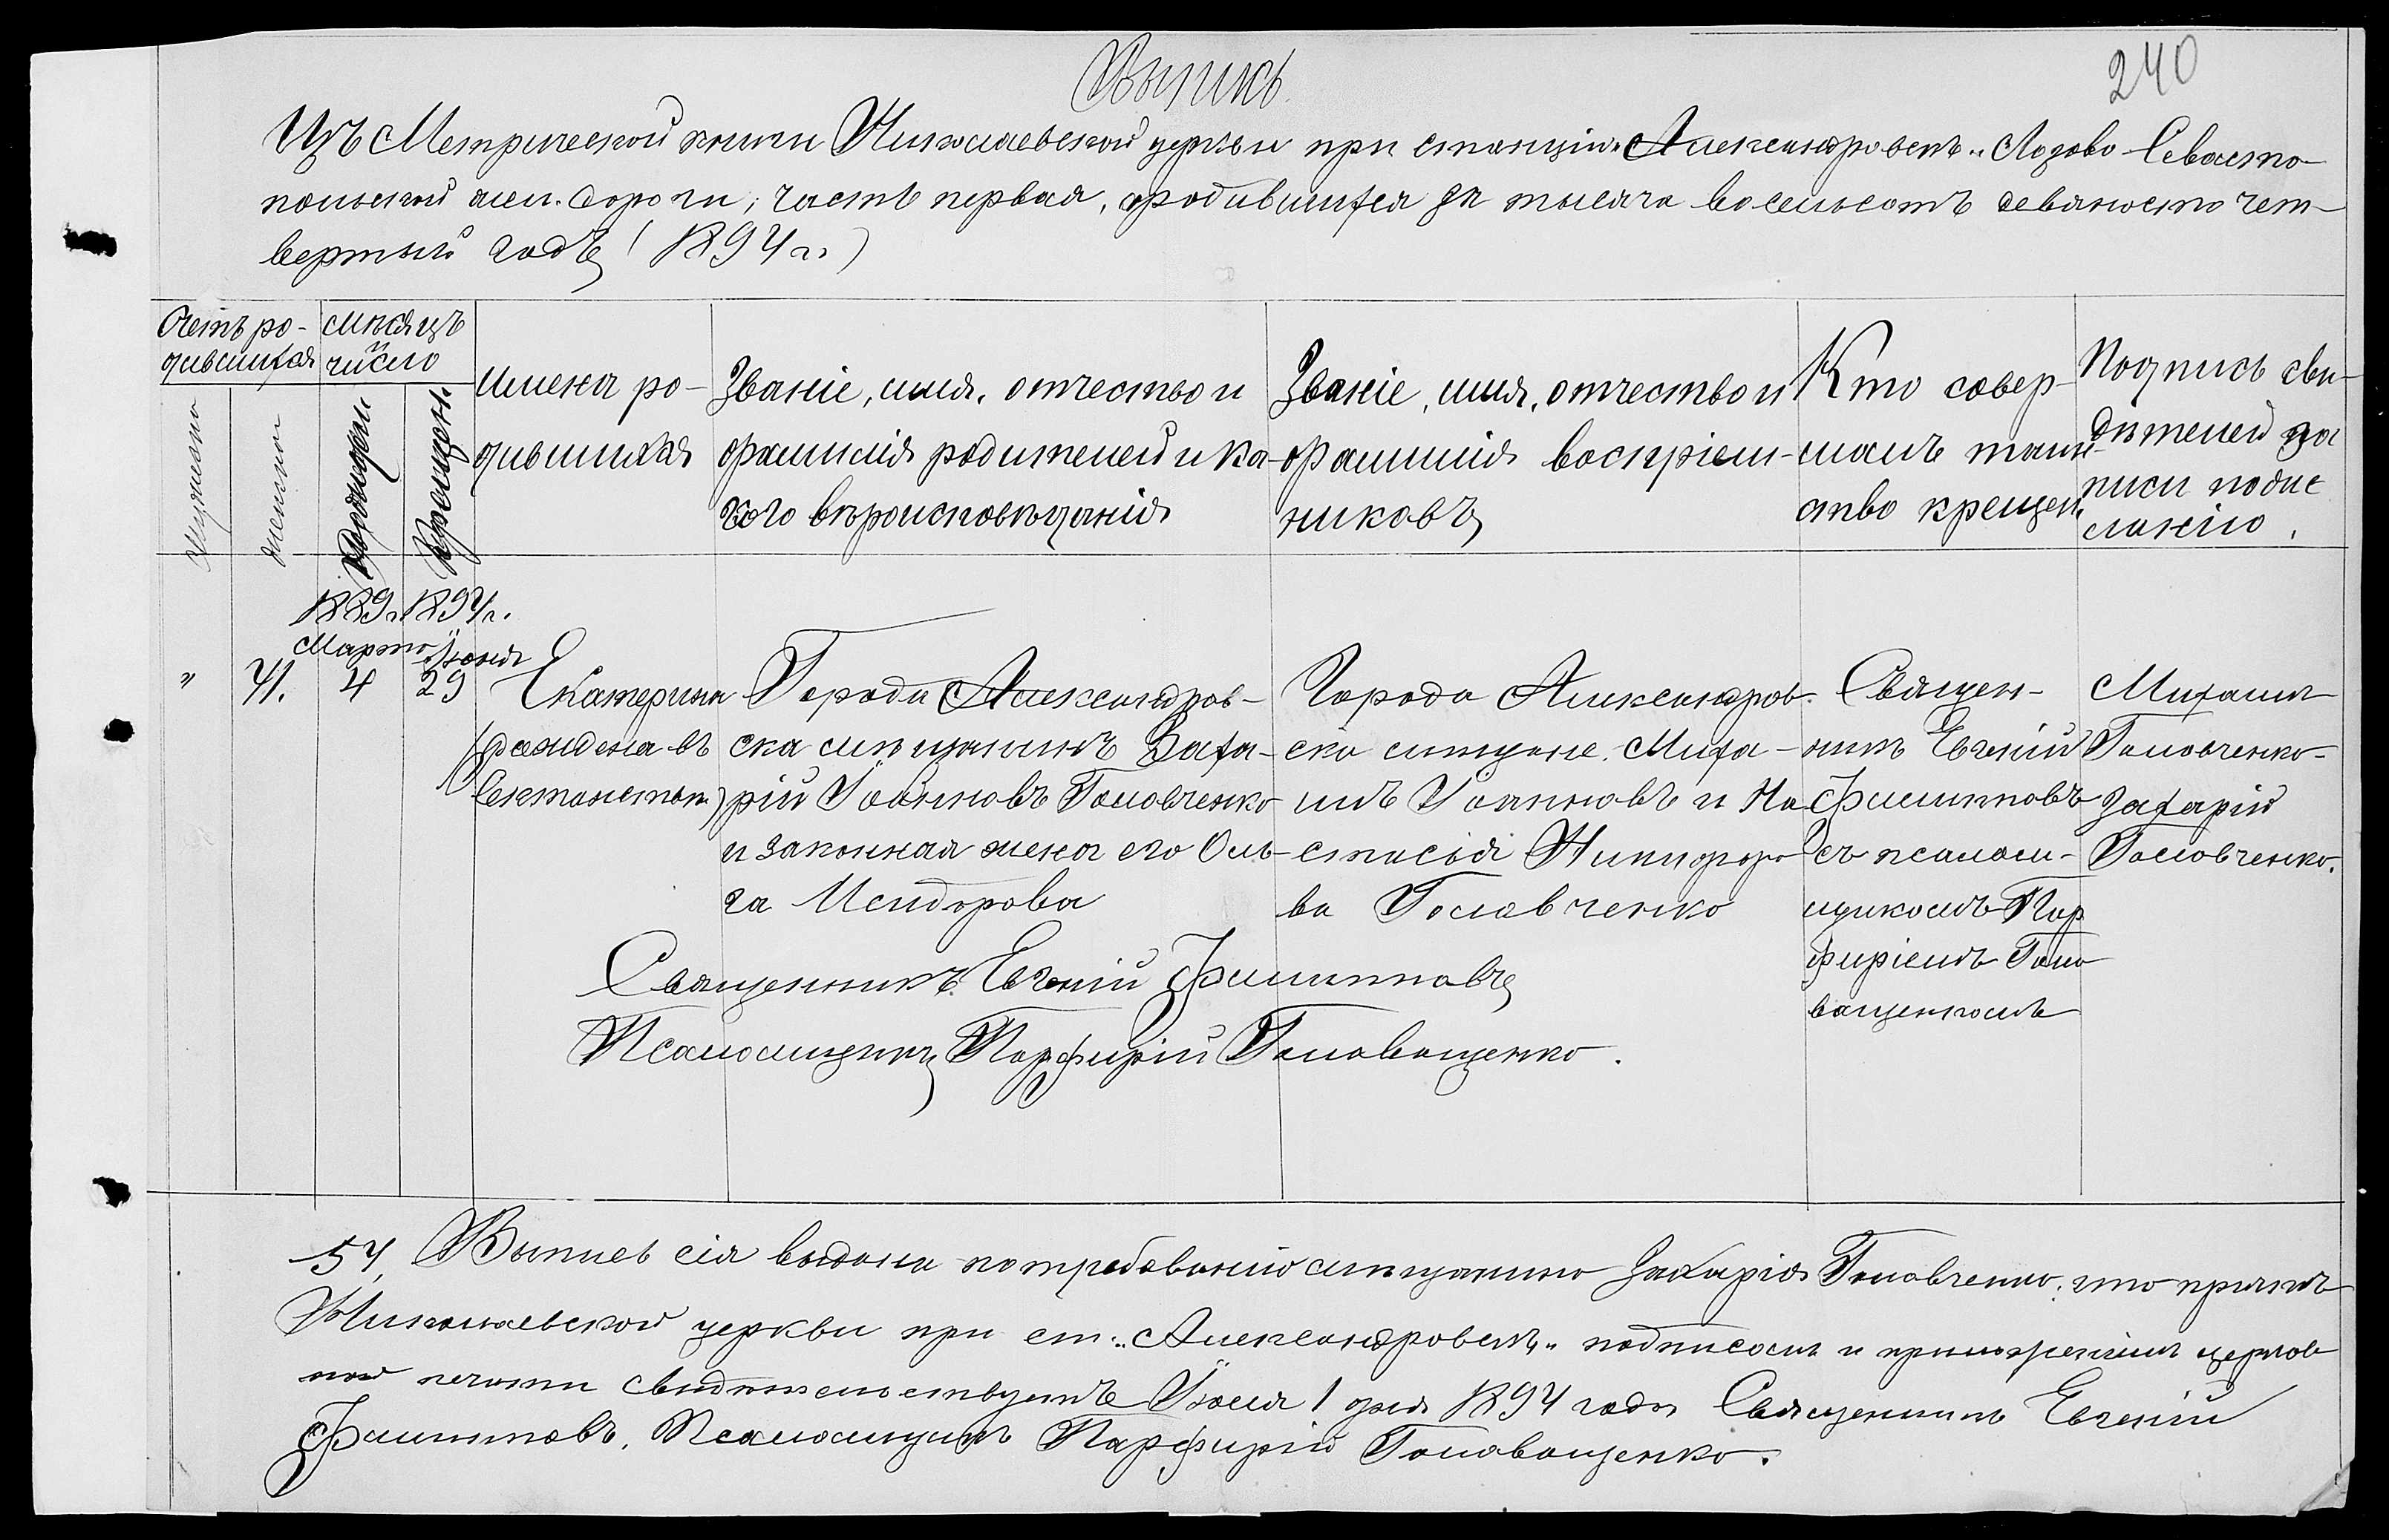 Выпись
240
Изъ Метрической книги Николаевской церкви при станціи „Александровскъ" Лозово-Севасто-
польской жел. дороги, часть первая, о родившихся за тысяча восемьсотъ девяносто чет-
вертый годъ (1894 г.)
Счетъ ро-
дившихся
мѣсяцъ
и
число
Мужеска
женска
Рожденія
Крещен.
Имена ро-
дившихся
Званіе, имя, отчество и
фамилія родителей и ка-
кого вѣроисповѣданія
Званіе, имя, отчество и
фамилія воспріем-
никовъ
Кто совер-
шалъ таин-
ство крещен.
Подпись сви-
дѣтелей за
писи по же
ланію.
1889 г. 1894 г.
Марта Іюня
" 41. 4 29
Екатерина
(рождена въ
Севастополѣ)
Города Александров-
ска мѣщанинъ Заха-
рій Іоанновъ Головченко
и законная жена его Оль-
га Исидорова
Города Александров-
ска мѣщане Миха-
илъ Іоанновъ и На
стасія Никифоро
ва Головченко
Священ-
никъ Евгеній
Филипповъ
съ псалом-
щикомъ Пор
фиріемъ Голо
ващенкомъ
Михаилъ
Головченко-
Захарій
Головченко.
Священникъ Евгеній Филипповъ
Псаломщикъ Порфирій Головащенко.
54, Выпись сія выдана по требованію мѣщанина Захарія Головченко, что причтъ
Николаевской церкви при ст. „Александровскъ" подписомъ и приложеніемъ церков
ной печати свидѣтельствуетъ Іюля 1 дня 1894 года Священникъ Евгеній
Филипповъ. Псаломщикъ Порфирій Головащенко.